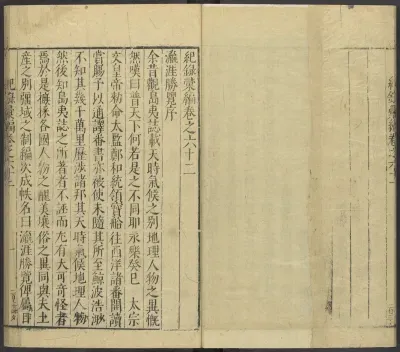 紀錄彙編卷之六十二
瀛涯勝覽序
余昔觀島夷誌載天時氣候之別地理人物之異慨
然嘆曰普天下何若是之不同耶永樂癸巳 太宗
文皇帝勑命太監鄭和統領寶船往西洋諸番開讀
賞賜予以通譯番書亦被使末隨其所至鯨波浩渺
不知其幾千萬里歷涉諸邦其天時氣候地理人物
然後知島夷誌之所著者不誣而尤有大可奇怪者
焉於是採摭各國人物之醜美壤俗之異同與夫土
產之別疆域之制編次成帙名曰瀛涯勝覽俾屬目
紀錄彙編卷之六十二